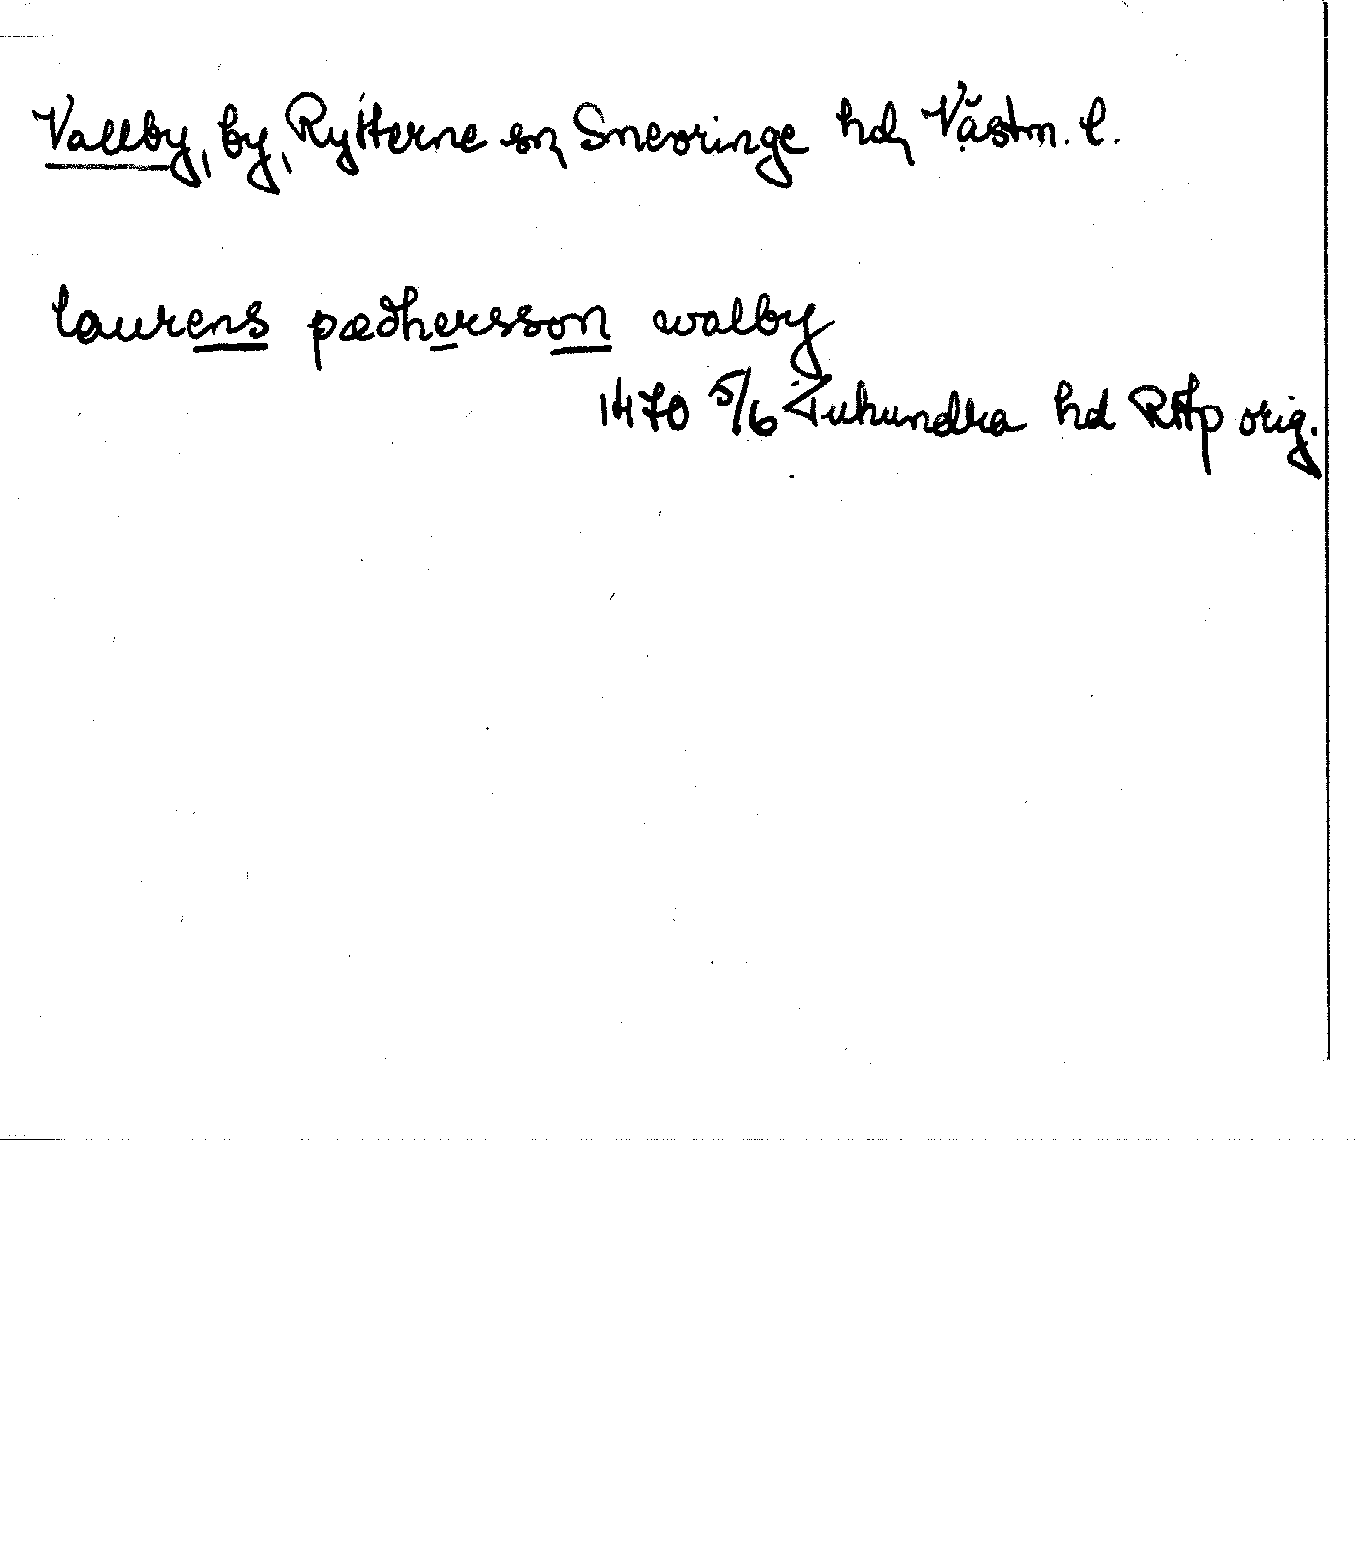 Vallby, by, Rytterne sn, Snevringe hd, Västm. l.
laurens pædhersson walby
1470 5/6 Tuhundra hd RAp orig.